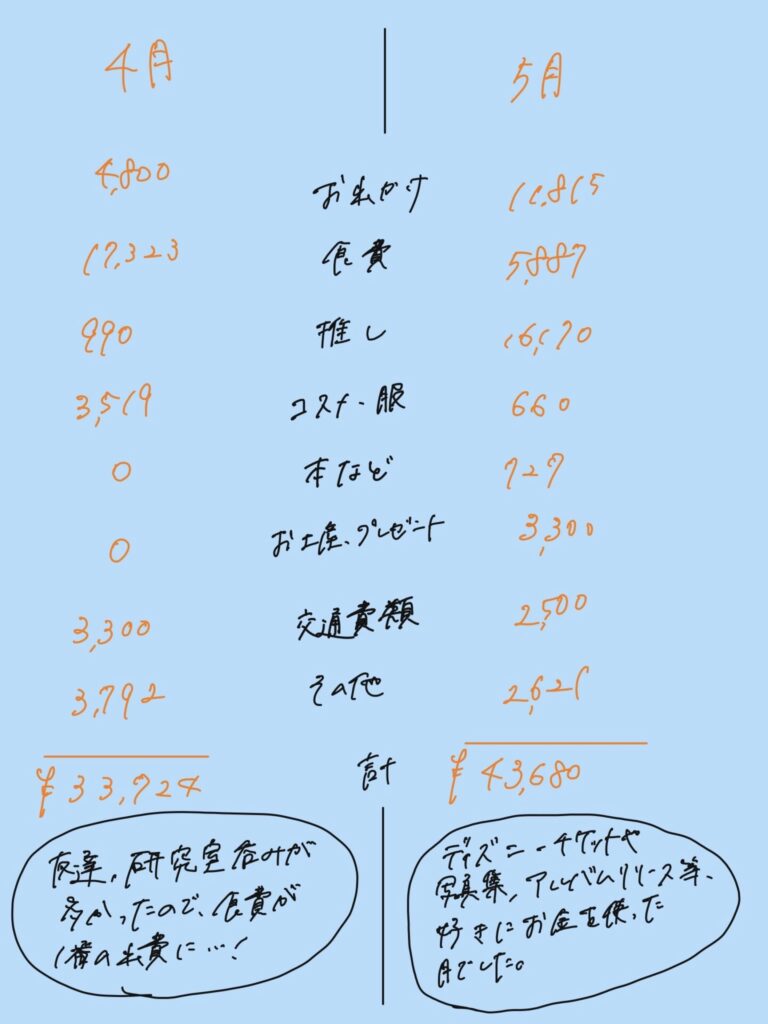 4月 5月
4,800 お出かけ 11,815
17,323 食費 5,887
990 推し 16,170
3,519 コスメ・服 660
0 本など 727
0 お土産、プレゼント 3,300
3,300 交通費類 2,500
3,792 その他 2,621
¥33,724 計 ¥43,680
友達、研究室呑みが
多かったので、食費が
1番の出費に…!
ディズニーチケットや
写真集、アルバムリリース等、
好きにお金を使った
月でした。